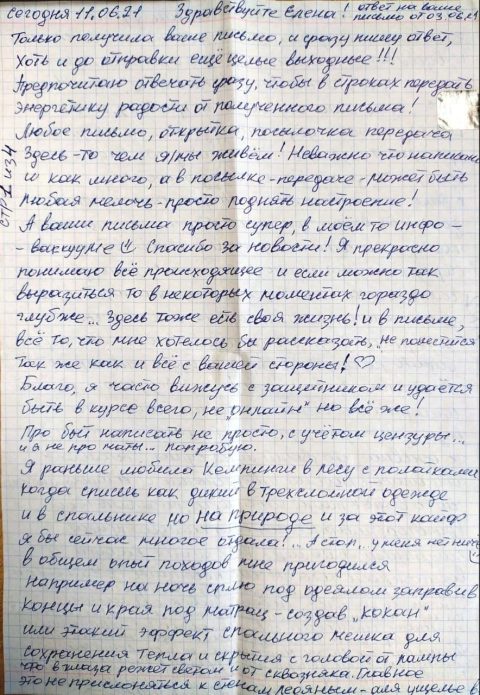 Сегодня 11.06.21 Здравствуйте Елена! ответ на ваше
письмо от 03.06.21
Только получила ваше письмо, и сразу пишу ответ,
Хоть и до отправки ещё целые выходные!!!
Предпочитаю отвечать сразу, чтобы в строках передать
энергетику радости от полученного письма!
Любое письмо, открытка, посылочка передача
Здесь-то чем я/мы живём! Неважно что написано
и как много, а в посылке-передаче-может быть
любая мелочь-просто поднять настроение!
А ваши письма просто супер, в моём то инфо-
-вакууме☺ Спасибо за новости! Я прекрасно
понимаю всё происходящее и если можно так
выразиться то в некоторых моментах гораздо
глубже... Здесь тоже есть своя жизнь! и в письме,
всё то, что мне хотелось бы рассказать, не поместится
Так же как и всё с вашей стороны! ♡
Благо, я часто вижусь с защитником и удаётся
быть в курсе всего, не „онлайн" но всё же!
Про быт написать не просто, с учётом цензуры...
и я не про маты... попробую.
Я раньше любила Кемпинги в лесу с палатками
когда спишь как дикий в трехслойной одежде
и в спальнике но на природе и за этот кайф
я бы сейчас многое отдала!.. А стоп, у меня нет ниче☺
в общем опыт походов мне пригодился
например на ночь сплю под одеялом заправив
концы и края под матрац - создав „кокан"
или этакий эффект спального мешка для
сохранения тепла и скрытия с головой от лампы
что в глаза режет светом и от сквозняка. Главное
это не прислоняться к стенам ледяным-
стр 1 из 4